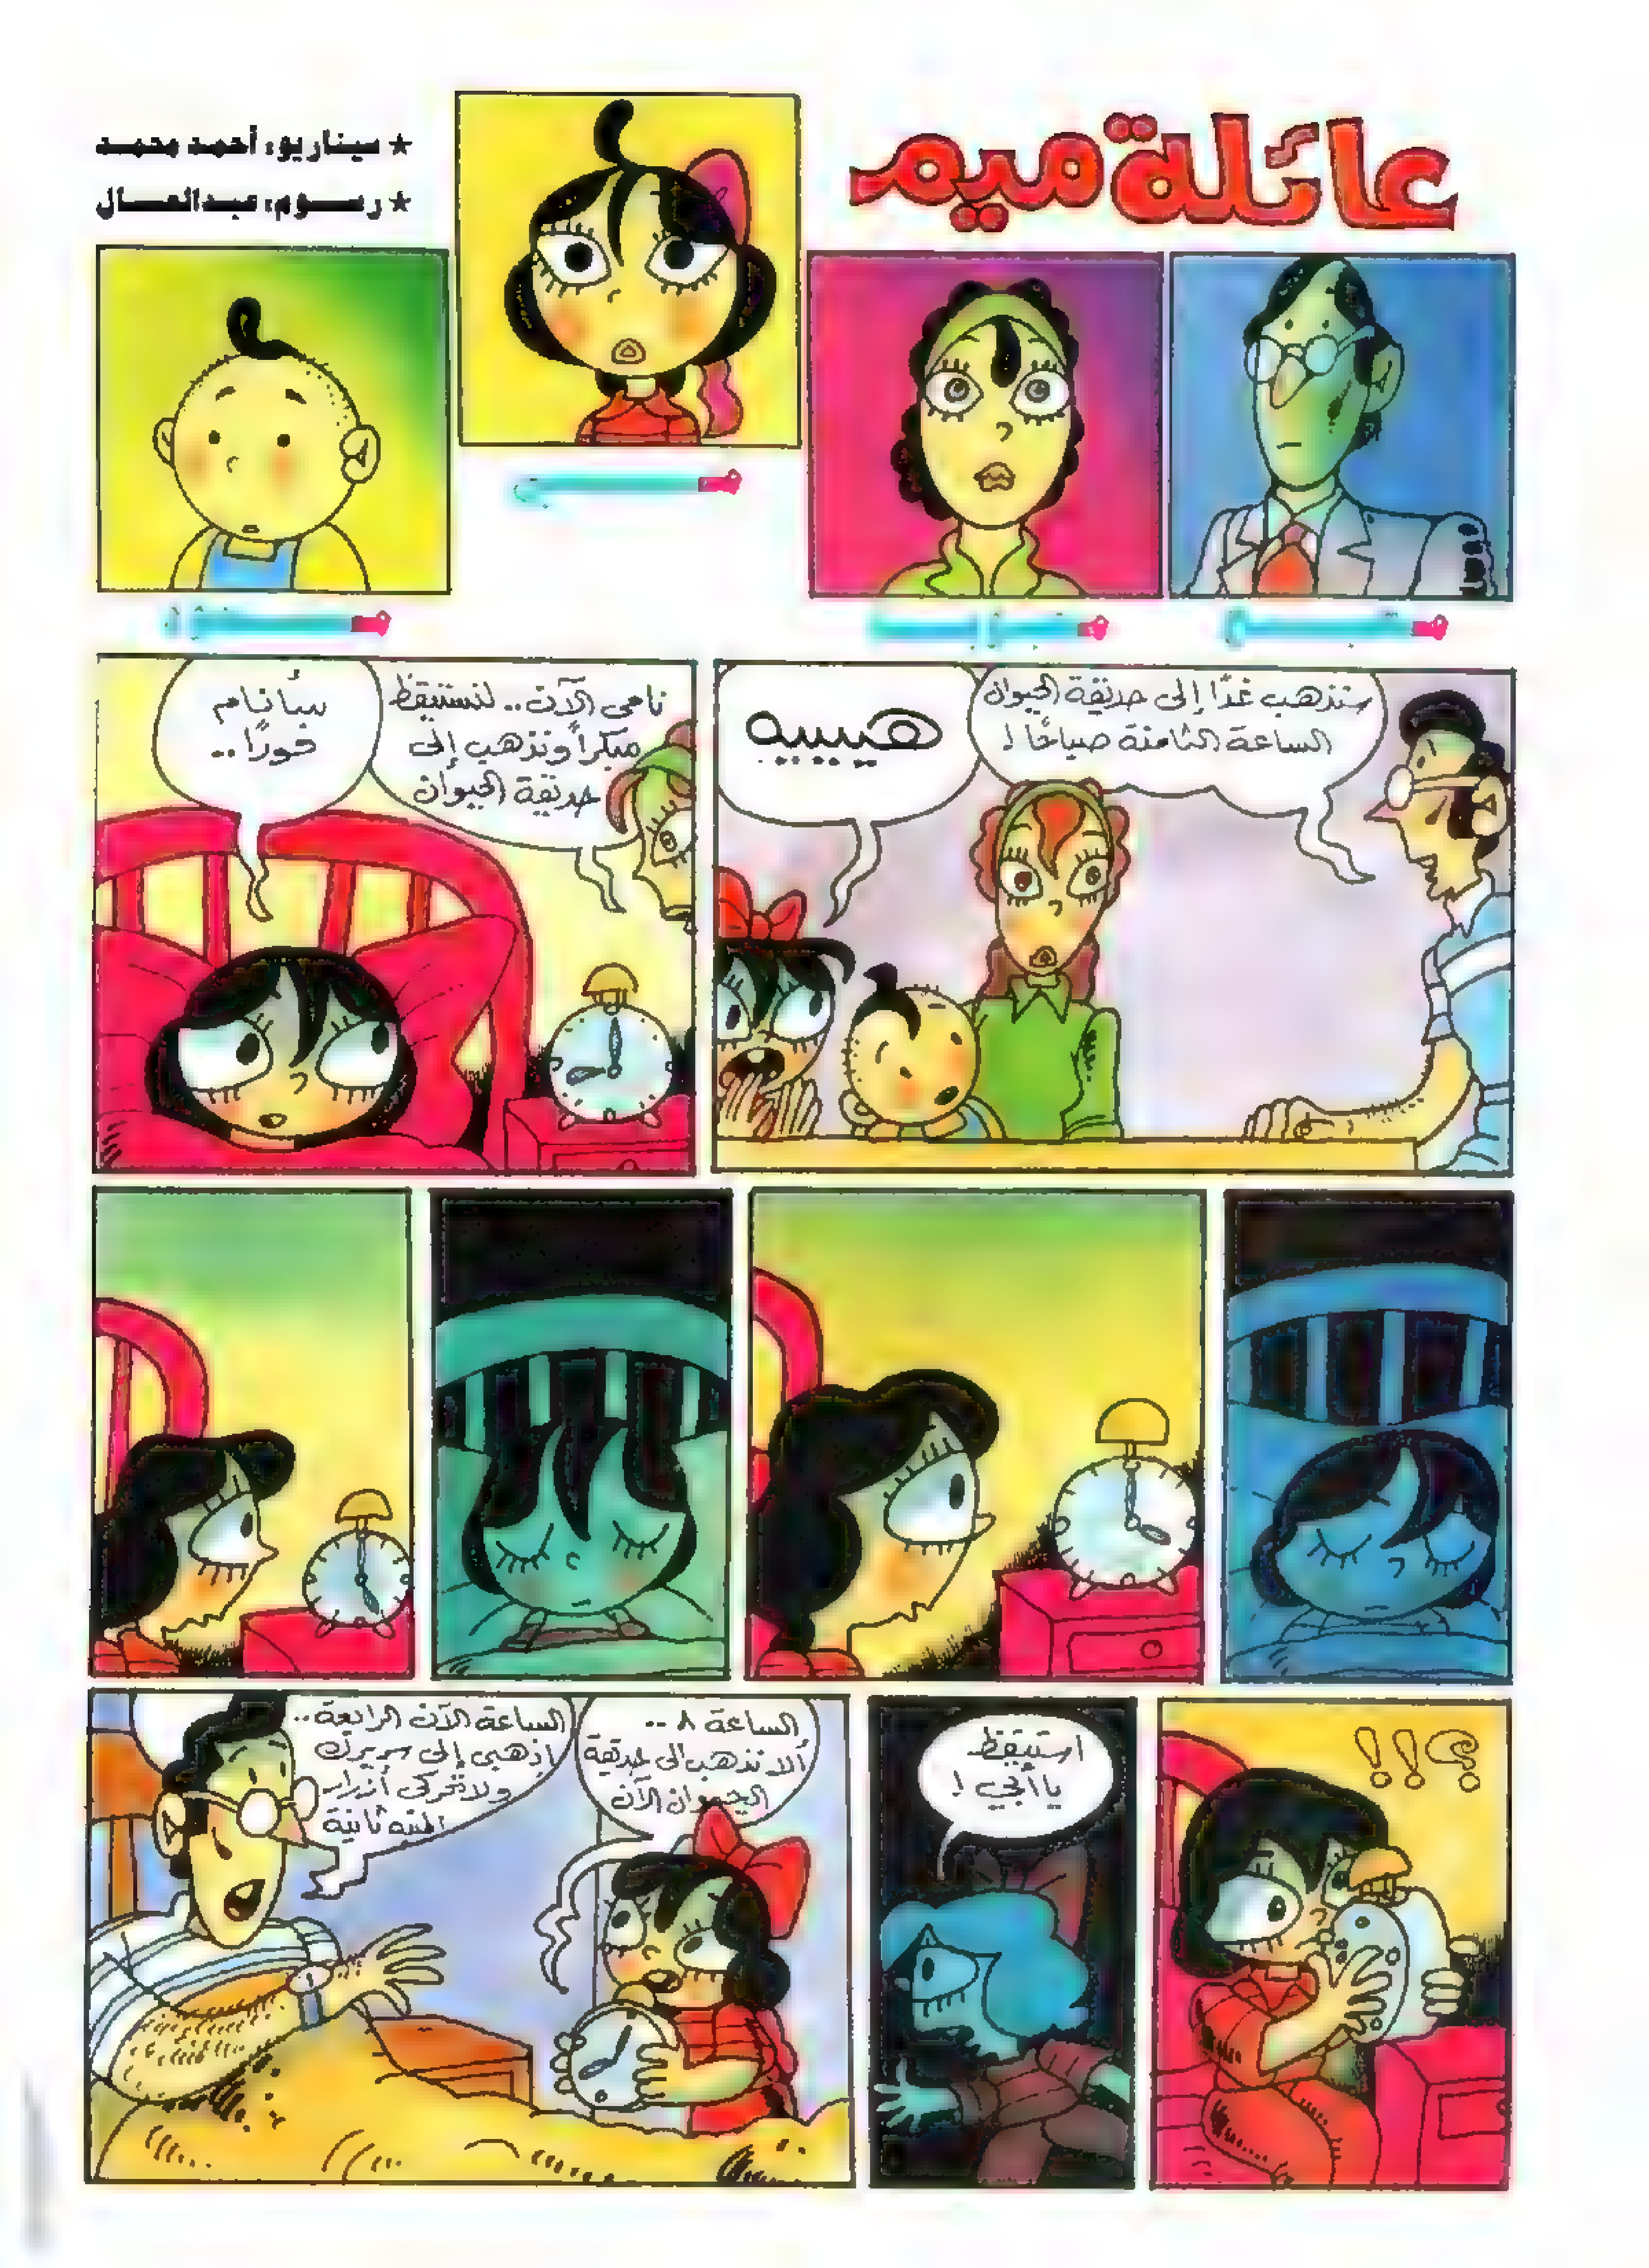 عائلة ميم
★ سيناريو: أحمد محمد
★ رسوم: عبدالعال
سنذهب غدًا إلى حديقة الحيوان
الساعة الثامنة صباحًا!
هييييه
نامى الآن.. لنستيقظ
مبكرًا ونذهب إلى
حديقة الحيوان
سأنام
فورًا..
؟!!
استيقظ
يا أبي!
الساعة ٨..
ألا نذهب إلى حديقة
الحيوان الآن
الساعة الآن الرابعة..
إذهبى إلى سريرك
ولا تحركى أزرار
المنبه ثانية